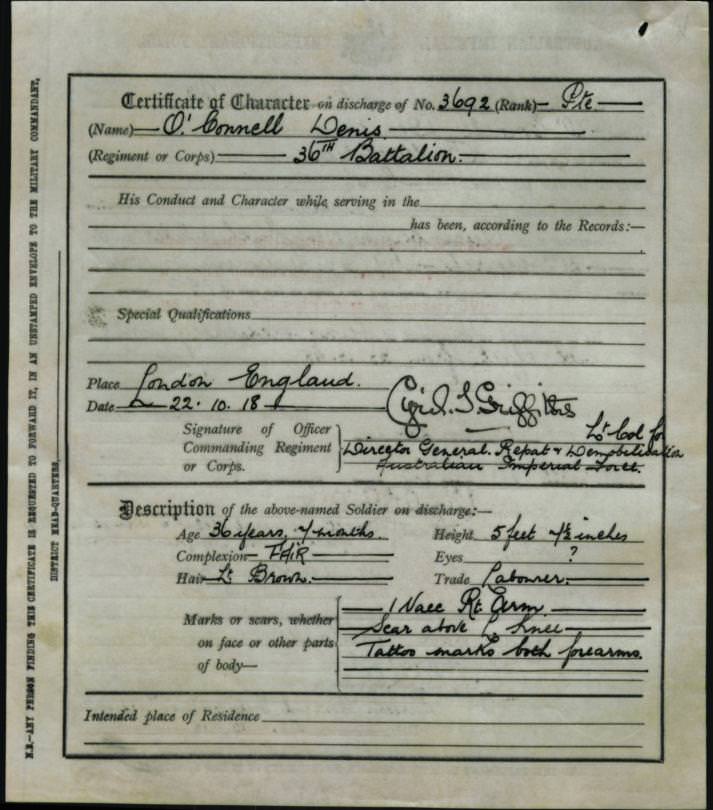 Certificate of Character on discharge of No. 3692 (Rank) Pte
(Name) O'Connell Denis
(Regiment or Corps) 36TH Battalion.
His Conduct and Character while serving in the
has been, according to the Records:—
Special Qualifications
Place London England.
Date 22.10.18
Cyril T Griffiths
Signature of Officer
Commanding Regiment
or Corps.
Lt Col for
Director General. Repat & Demobilisation
Australian Imperial Force.
Description of the above-named Soldier on discharge:—
Age 36 years, 4 months. Height 5 feet 4½ inches
Complexion FAIR Eyes ?
Hair Lt Brown. Trade Labourer.
Marks or scars, whether
on face or other parts
of body—
1 Vacc Rt Arm
Scar above L Knee
Tattoo marks both forearms.
Intended place of Residence
N.B.—ANY PERSON FINDING THIS CERTIFICATE IS REQUESTED TO FORWARD IT, IN AN UNSTAMPED ENVELOPE TO THE MILITARY COMMANDANT,
DISTRICT HEAD-QUARTERS,